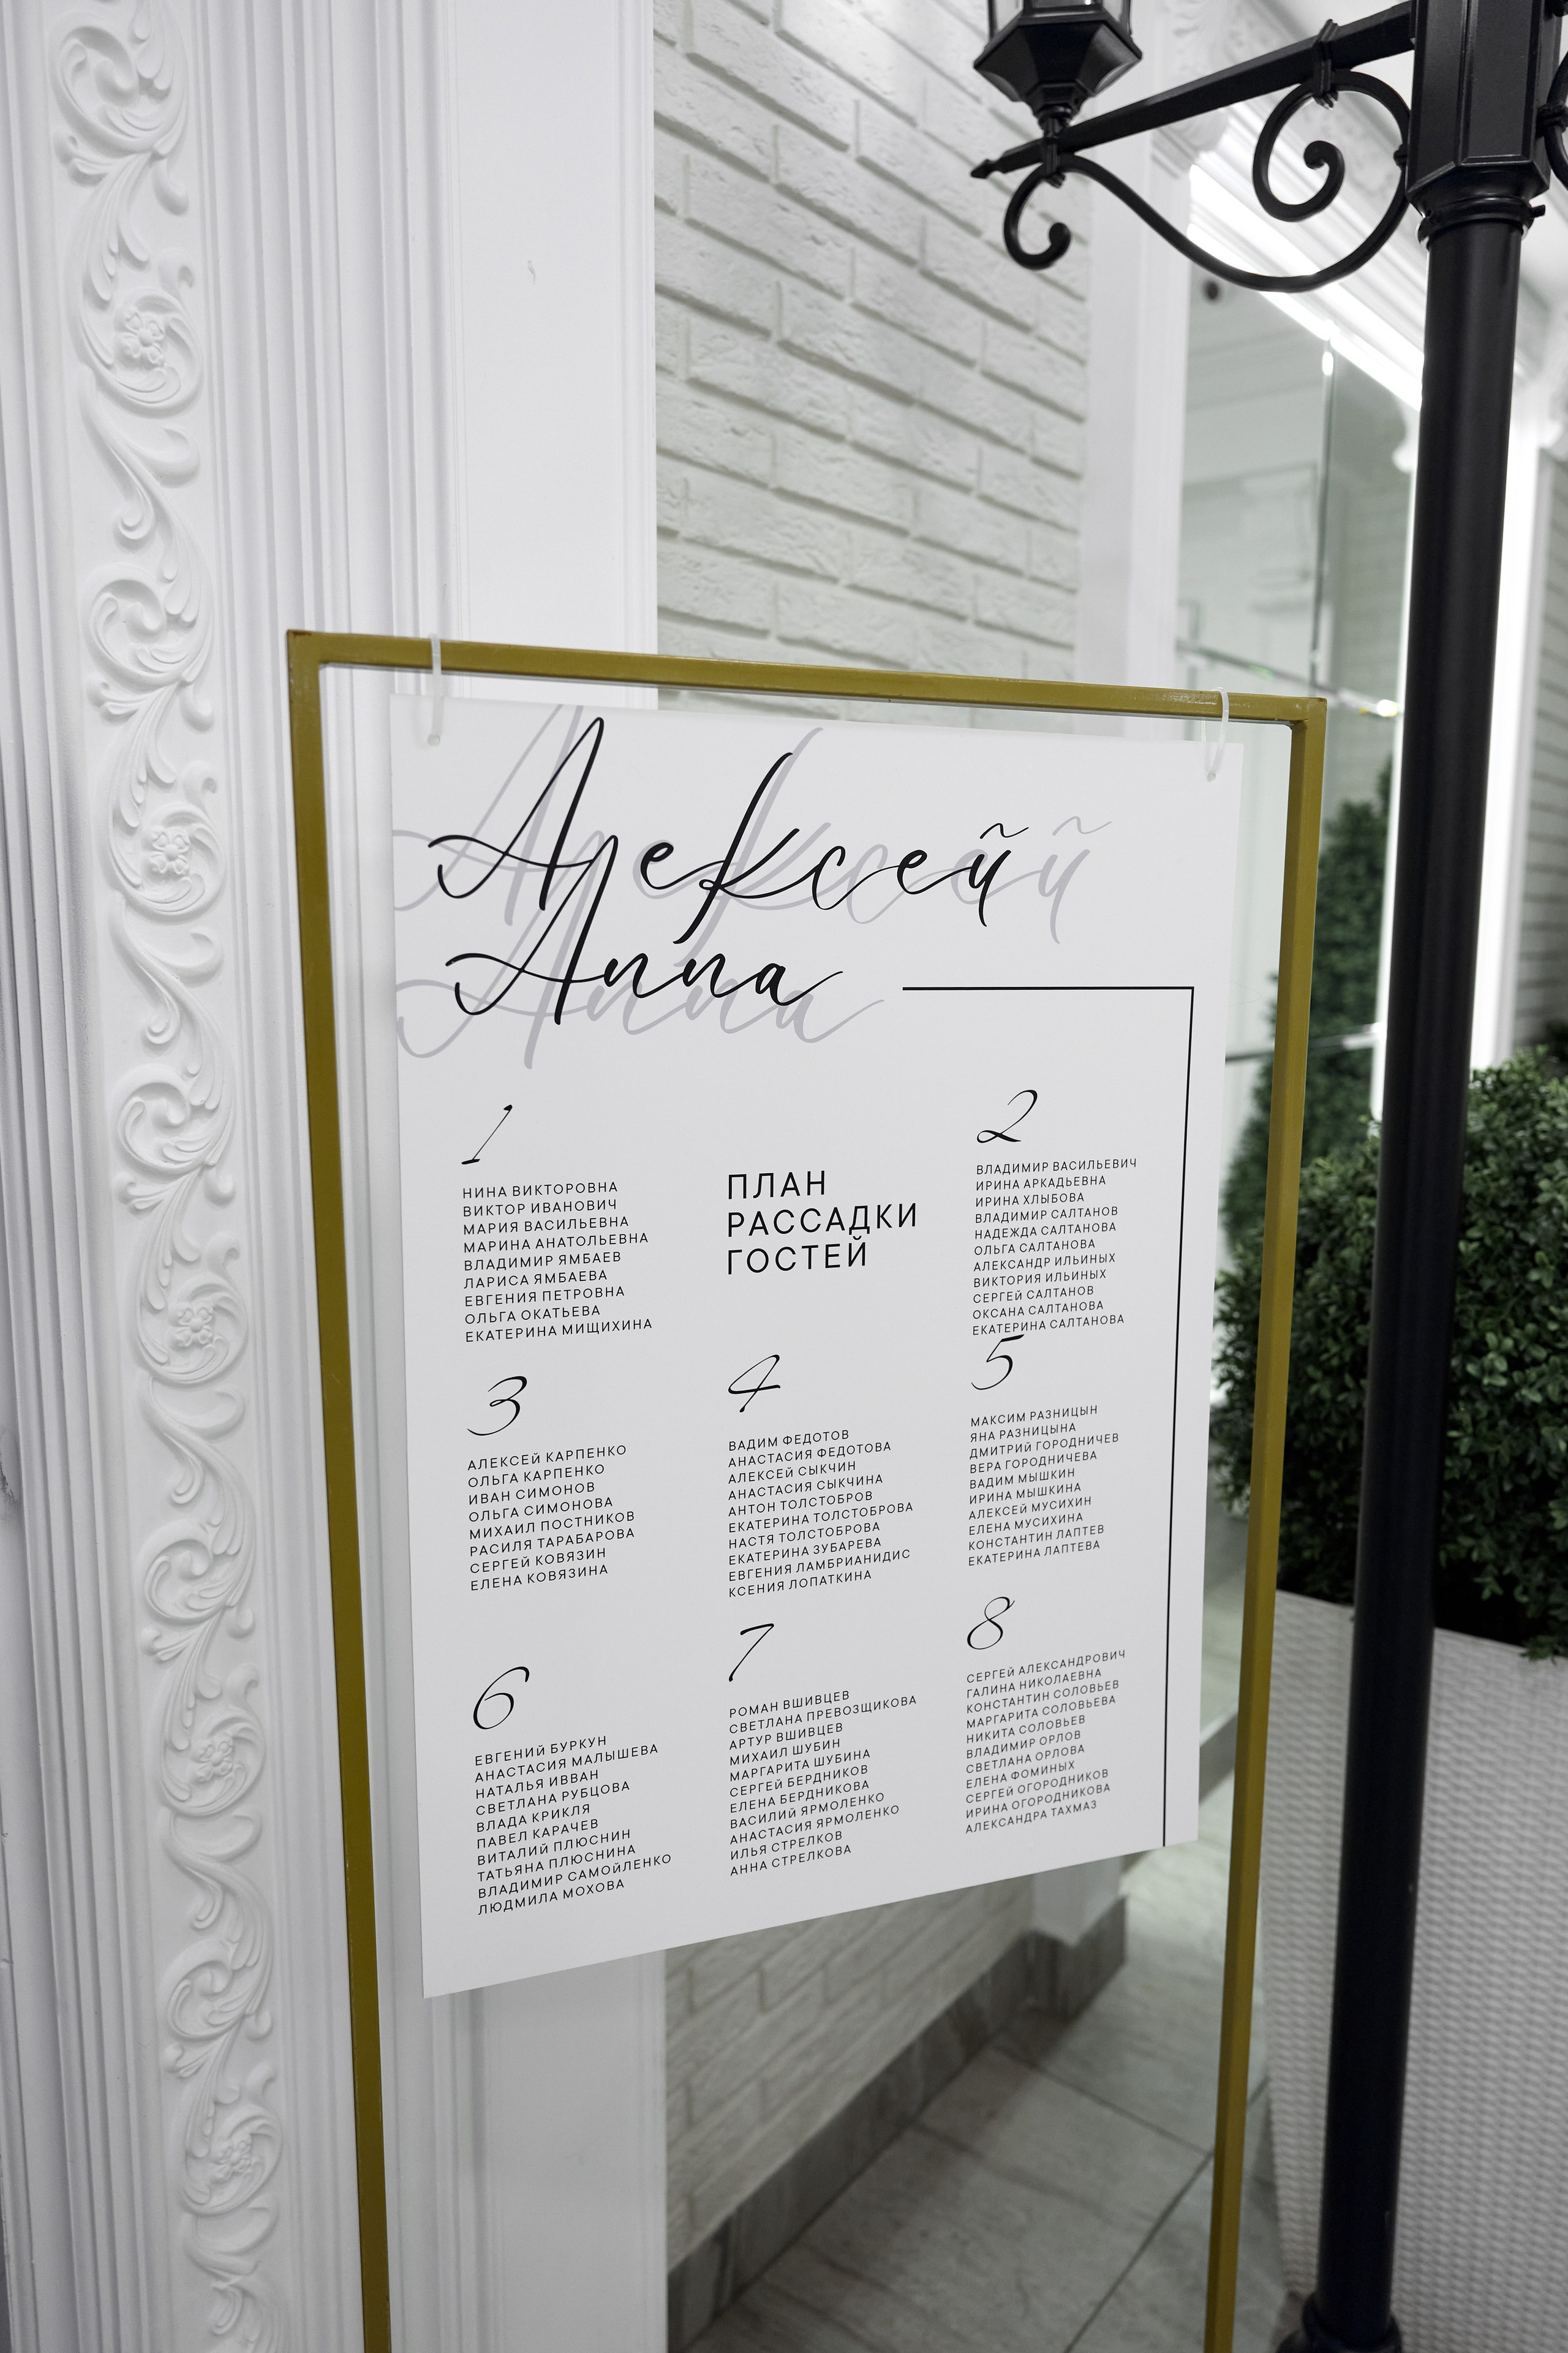 Алексей
Анна
1
НИНА ВИКТОРОВНА
ВИКТОР ИВАНОВИЧ
МАРИЯ ВАСИЛЬЕВНА
МАРИНА АНАТОЛЬЕВНА
ВЛАДИМИР ЯМБАЕВ
ЛАРИСА ЯМБАЕВА
ЕВГЕНИЯ ПЕТРОВНА
ОЛЬГА ОКАТЬЕВА
ЕКАТЕРИНА МИЩИХИНА
ПЛАН
РАССАДКИ
ГОСТЕЙ
2
ВЛАДИМИР ВАСИЛЬЕВИЧ
ИРИНА АРКАДЬЕВНА
ИРИНА ХЛЫБОВА
ВЛАДИМИР САЛТАНОВ
НАДЕЖДА САЛТАНОВА
ОЛЬГА САЛТАНОВА
АЛЕКСАНДР ИЛЬИНЫХ
ВИКТОРИЯ ИЛЬИНЫХ
СЕРГЕЙ САЛТАНОВ
ОКСАНА САЛТАНОВА
ЕКАТЕРИНА САЛТАНОВА
3
АЛЕКСЕЙ КАРПЕНКО
ОЛЬГА КАРПЕНКО
ИВАН СИМОНОВ
ОЛЬГА СИМОНОВА
МИХАИЛ ПОСТНИКОВ
РАСИЛЯ ТАРАБАРОВА
СЕРГЕЙ КОВЯЗИН
ЕЛЕНА КОВЯЗИНА
4
ВАДИМ ФЕДОТОВ
АНАСТАСИЯ ФЕДОТОВА
АЛЕКСЕЙ СЫКЧИН
АНАСТАСИЯ СЫКЧИНА
АНТОН ТОЛСТОБРОВ
ЕКАТЕРИНА ТОЛСТОБРОВА
НАСТЯ ТОЛСТОБРОВА
ЕКАТЕРИНА ЗУБАРЕВА
ЕВГЕНИЯ ЛАМБРИАНИДИС
КСЕНИЯ ЛОПАТКИНА
5
МАКСИМ РАЗНИЦЫН
ЯНА РАЗНИЦЫНА
ДМИТРИЙ ГОРОДНИЧЕВ
ВЕРА ГОРОДНИЧЕВА
ВАДИМ МЫШКИН
ИРИНА МЫШКИНА
АЛЕКСЕЙ МУСИХИН
ЕЛЕНА МУСИХИНА
КОНСТАНТИН ЛАПТЕВ
ЕКАТЕРИНА ЛАПТЕВА
6
ЕВГЕНИЙ БУРКУН
АНАСТАСИЯ МАЛЫШЕВА
НАТАЛЬЯ ИВВАН
СВЕТЛАНА РУБЦОВА
ВЛАДА КРИКЛЯ
ПАВЕЛ КАРАЧЕВ
ВИТАЛИЙ ПЛЮСНИН
ТАТЬЯНА ПЛЮСНИНА
ВЛАДИМИР САМОЙЛЕНКО
ЛЮДМИЛА МОХОВА
7
РОМАН ВШИВЦЕВ
СВЕТЛАНА ПРЕВОЗЩИКОВА
АРТУР ВШИВЦЕВ
МИХАИЛ ШУБИН
МАРГАРИТА ШУБИНА
СЕРГЕЙ БЕРДНИКОВ
ЕЛЕНА БЕРДНИКОВА
ВАСИЛИЙ ЯРМОЛЕНКО
АНАСТАСИЯ ЯРМОЛЕНКО
ИЛЬЯ СТРЕЛКОВ
АННА СТРЕЛКОВА
8
СЕРГЕЙ АЛЕКСАНДРОВИЧ
ГАЛИНА НИКОЛАЕВНА
КОНСТАНТИН СОЛОВЬЕВ
МАРГАРИТА СОЛОВЬЕВА
НИКИТА СОЛОВЬЕВ
ВЛАДИМИР ОРЛОВ
СВЕТЛАНА ОРЛОВА
ЕЛЕНА ФОМИНЫХ
СЕРГЕЙ ОГОРОДНИКОВ
ИРИНА ОГОРОДНИКОВА
АЛЕКСАНДРА ТАХМАЗ